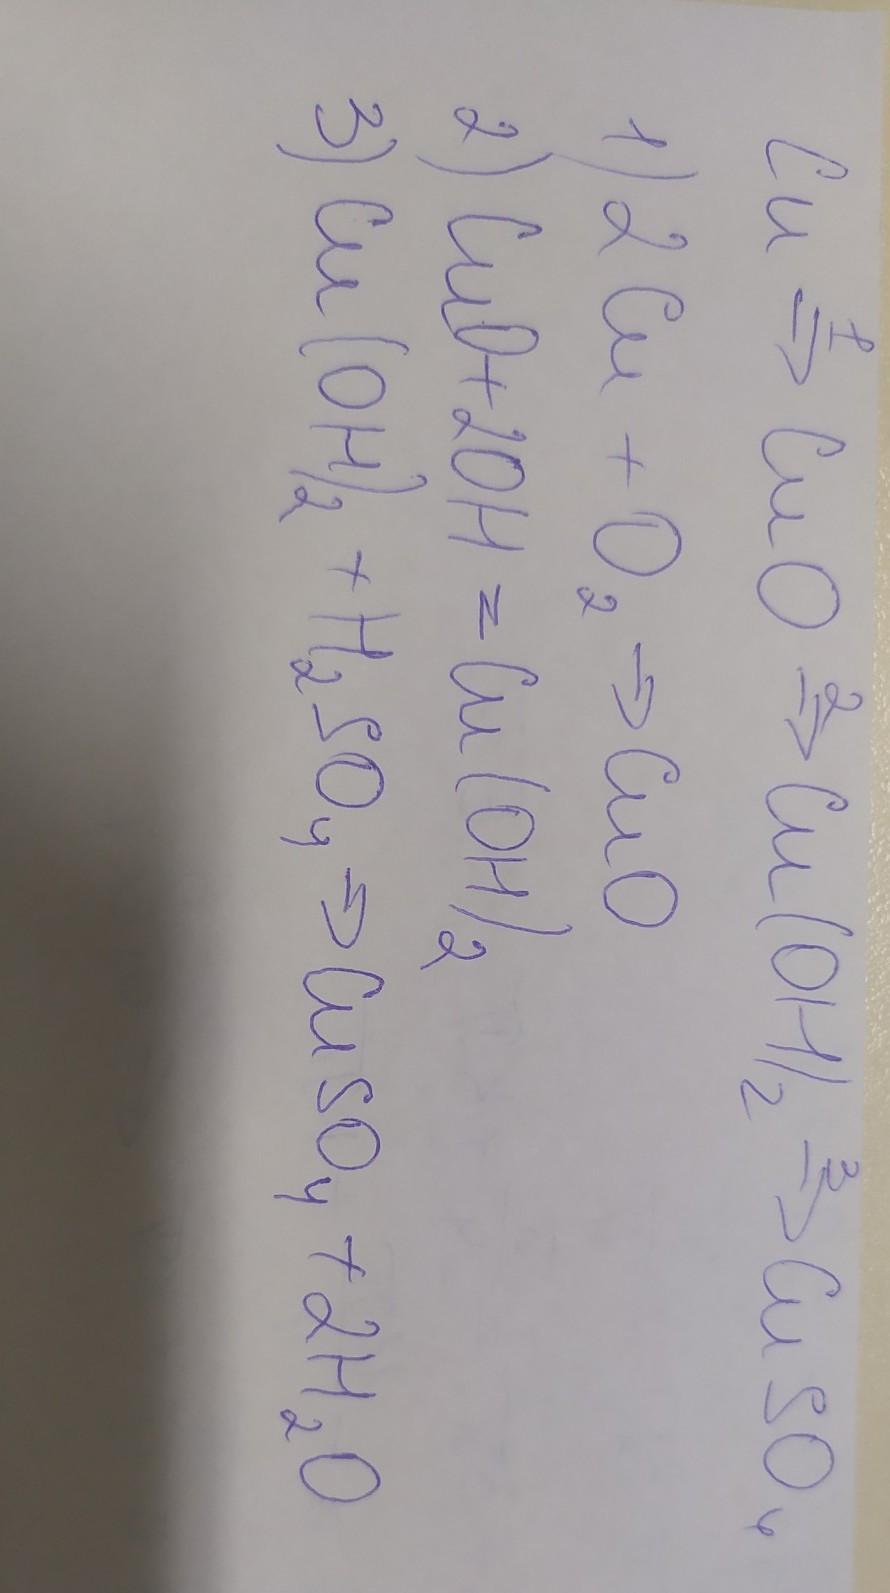 Cu ⇒¹ CuO ⇒² Cu(OH)₂ ⇒³ CuSO₄
1) 2Cu + O₂ ⇒ CuO
2) CuO + 2OH = Cu(OH)₂
3) Cu(OH)₂ + H₂SO₄ ⇒ CuSO₄ + 2H₂O